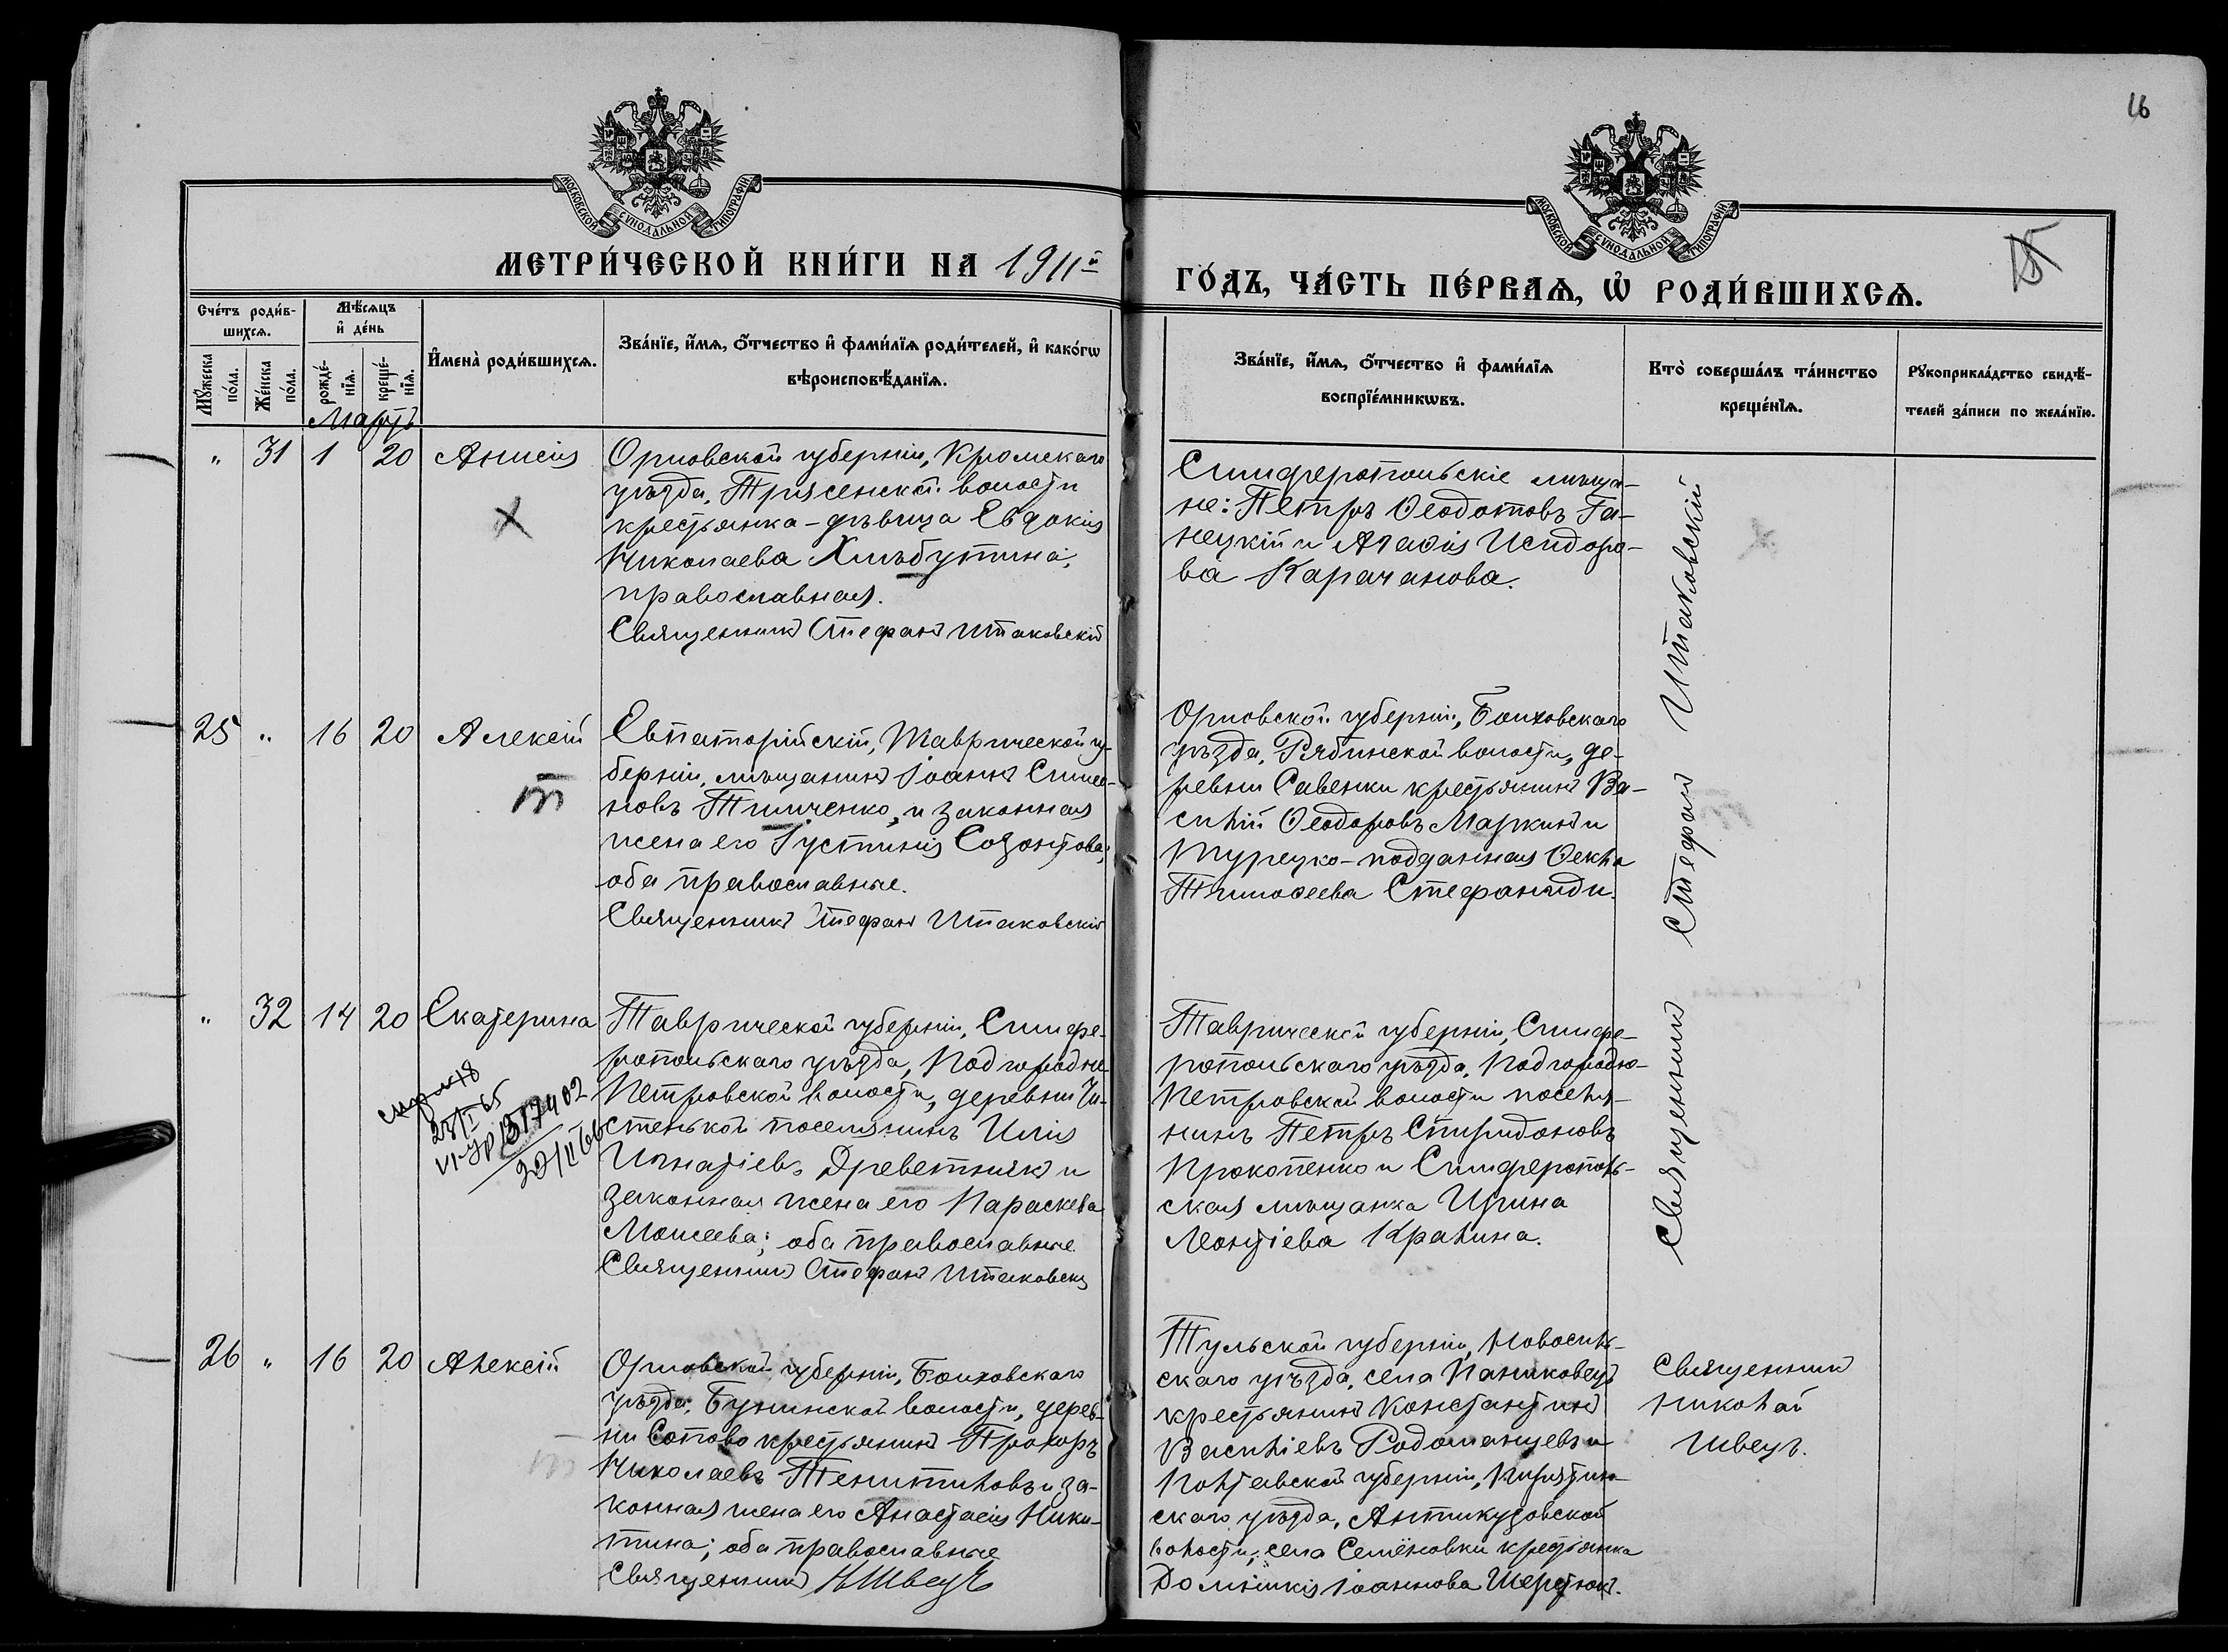 16
15
МОСКОВСКОЙ СѴНОДАЛЬНОЙ ТИПОГРАФІИ
МОСКОВСКОЙ СѴНОДАЛЬНОЙ ТИПОГРАФІИ
МЕТРИ́ЧЕСКОЙ КНИ́ГИ НА 1911й
ГО́ДЪ, ЧА́СТЬ ПЕ́РВАѦ, Ѡ҆ РОДИ́ВШИХСѦ.
Сче́тъ роди́в-
шихсѧ.
Мꙋ́жеска по́ла.
Же́нска по́ла.
Мѣ́сѧцъ
и҆ де́нь
рожде́-
нїѧ.
креще́-
нїѧ.
И҆мена̀ роди́вшихсѧ.
Зва́нїе, и҆́мѧ, ѻ҆́тчество и҆ фами́лїѧ роди́телей, и҆ како́гѡ
вѣроисповѣ́данїѧ.
Зва́нїе, и҆́мѧ, ѻ҆́тчество и҆ фами́лїѧ
воспрїе́мникѡвъ.
Кто̀ соверша́лъ та́инство
креще́нїѧ.
Рꙋкоприкла́дство свидѣ́-
телей за́писи по жела́нїю.
Мартъ
" 31 1 20 Анисія
Орловской губерніи, Кромскаго
уѣзда, Трясенской волости
крестьянка-дѣвица Евдокія
Николаева Хлѣбутина,
православная.
Священникъ Стефанъ Штаковскій
Симферопольскіе мѣща-
не: Петръ Ѳеодотовъ Га-
нецкій и Агаѳія Исидоро-
ва Карачанова.
25 " 16 20 Алексій
т
Евпаторійскій, Таврической гу-
берніи, мѣщанинъ Іоаннъ Симео-
новъ Тимченко, и законная
жена его Іустинія Созонтова;
оба православные.
Священникъ Стефанъ Штаковскій
Орловской губерніи, Болховскаго
уѣзда, Рябинской волости, де-
ревни Савенки крестьянинъ Ва-
силій Ѳеодоровъ Маркинъ и
турецко-подданная Ѳекла
Тимоѳеева Стефаниди.
" 32 14 20 Екатерина
23/I 65
VI-УР 317402
22/II 66
Таврической губерніи, Симфе-
ропольскаго уѣзда, Подгородне-
Петровской волости, деревни Чи-
стенькой поселянинъ Илія
Игнатіевъ Древетнякъ и
законная жена его Параскева
Моисеева; оба православные
Священникъ Стефанъ Штаковскій
Таврической губерніи, Симфе-
ропольскаго уѣзда, Подгородно-
Петровской волости поселя-
нинъ Петръ Спиридоновъ
Прокопенко и Симферополь-
ская мѣщанка Ирина
Леонтіева Кралина.
Священникъ Стефанъ Штаковскій
26 " 16 20 Алексій
т
Орловской губерніи, Болховскаго
уѣзда, Бунинской волости, дерев-
ни Сопово крестьянинъ Прохоръ
Николаевъ Тенитиловъ и за-
конная жена его Анастасія Ники-
тина; оба православные
Священникъ Н Швецъ
Тульской губерніи, Новосиль-
скаго уѣзда, села Паниковецъ
крестьянинъ Константинъ
Василіевъ Родоманцевъ и
Полтавской губерніи, Пирятин-
скаго уѣзда, Антикузовской
волости, села Семёновки крестьянка
Домникія Іоаннова Шерстюкъ.
Священникъ
Николай
Швецъ.